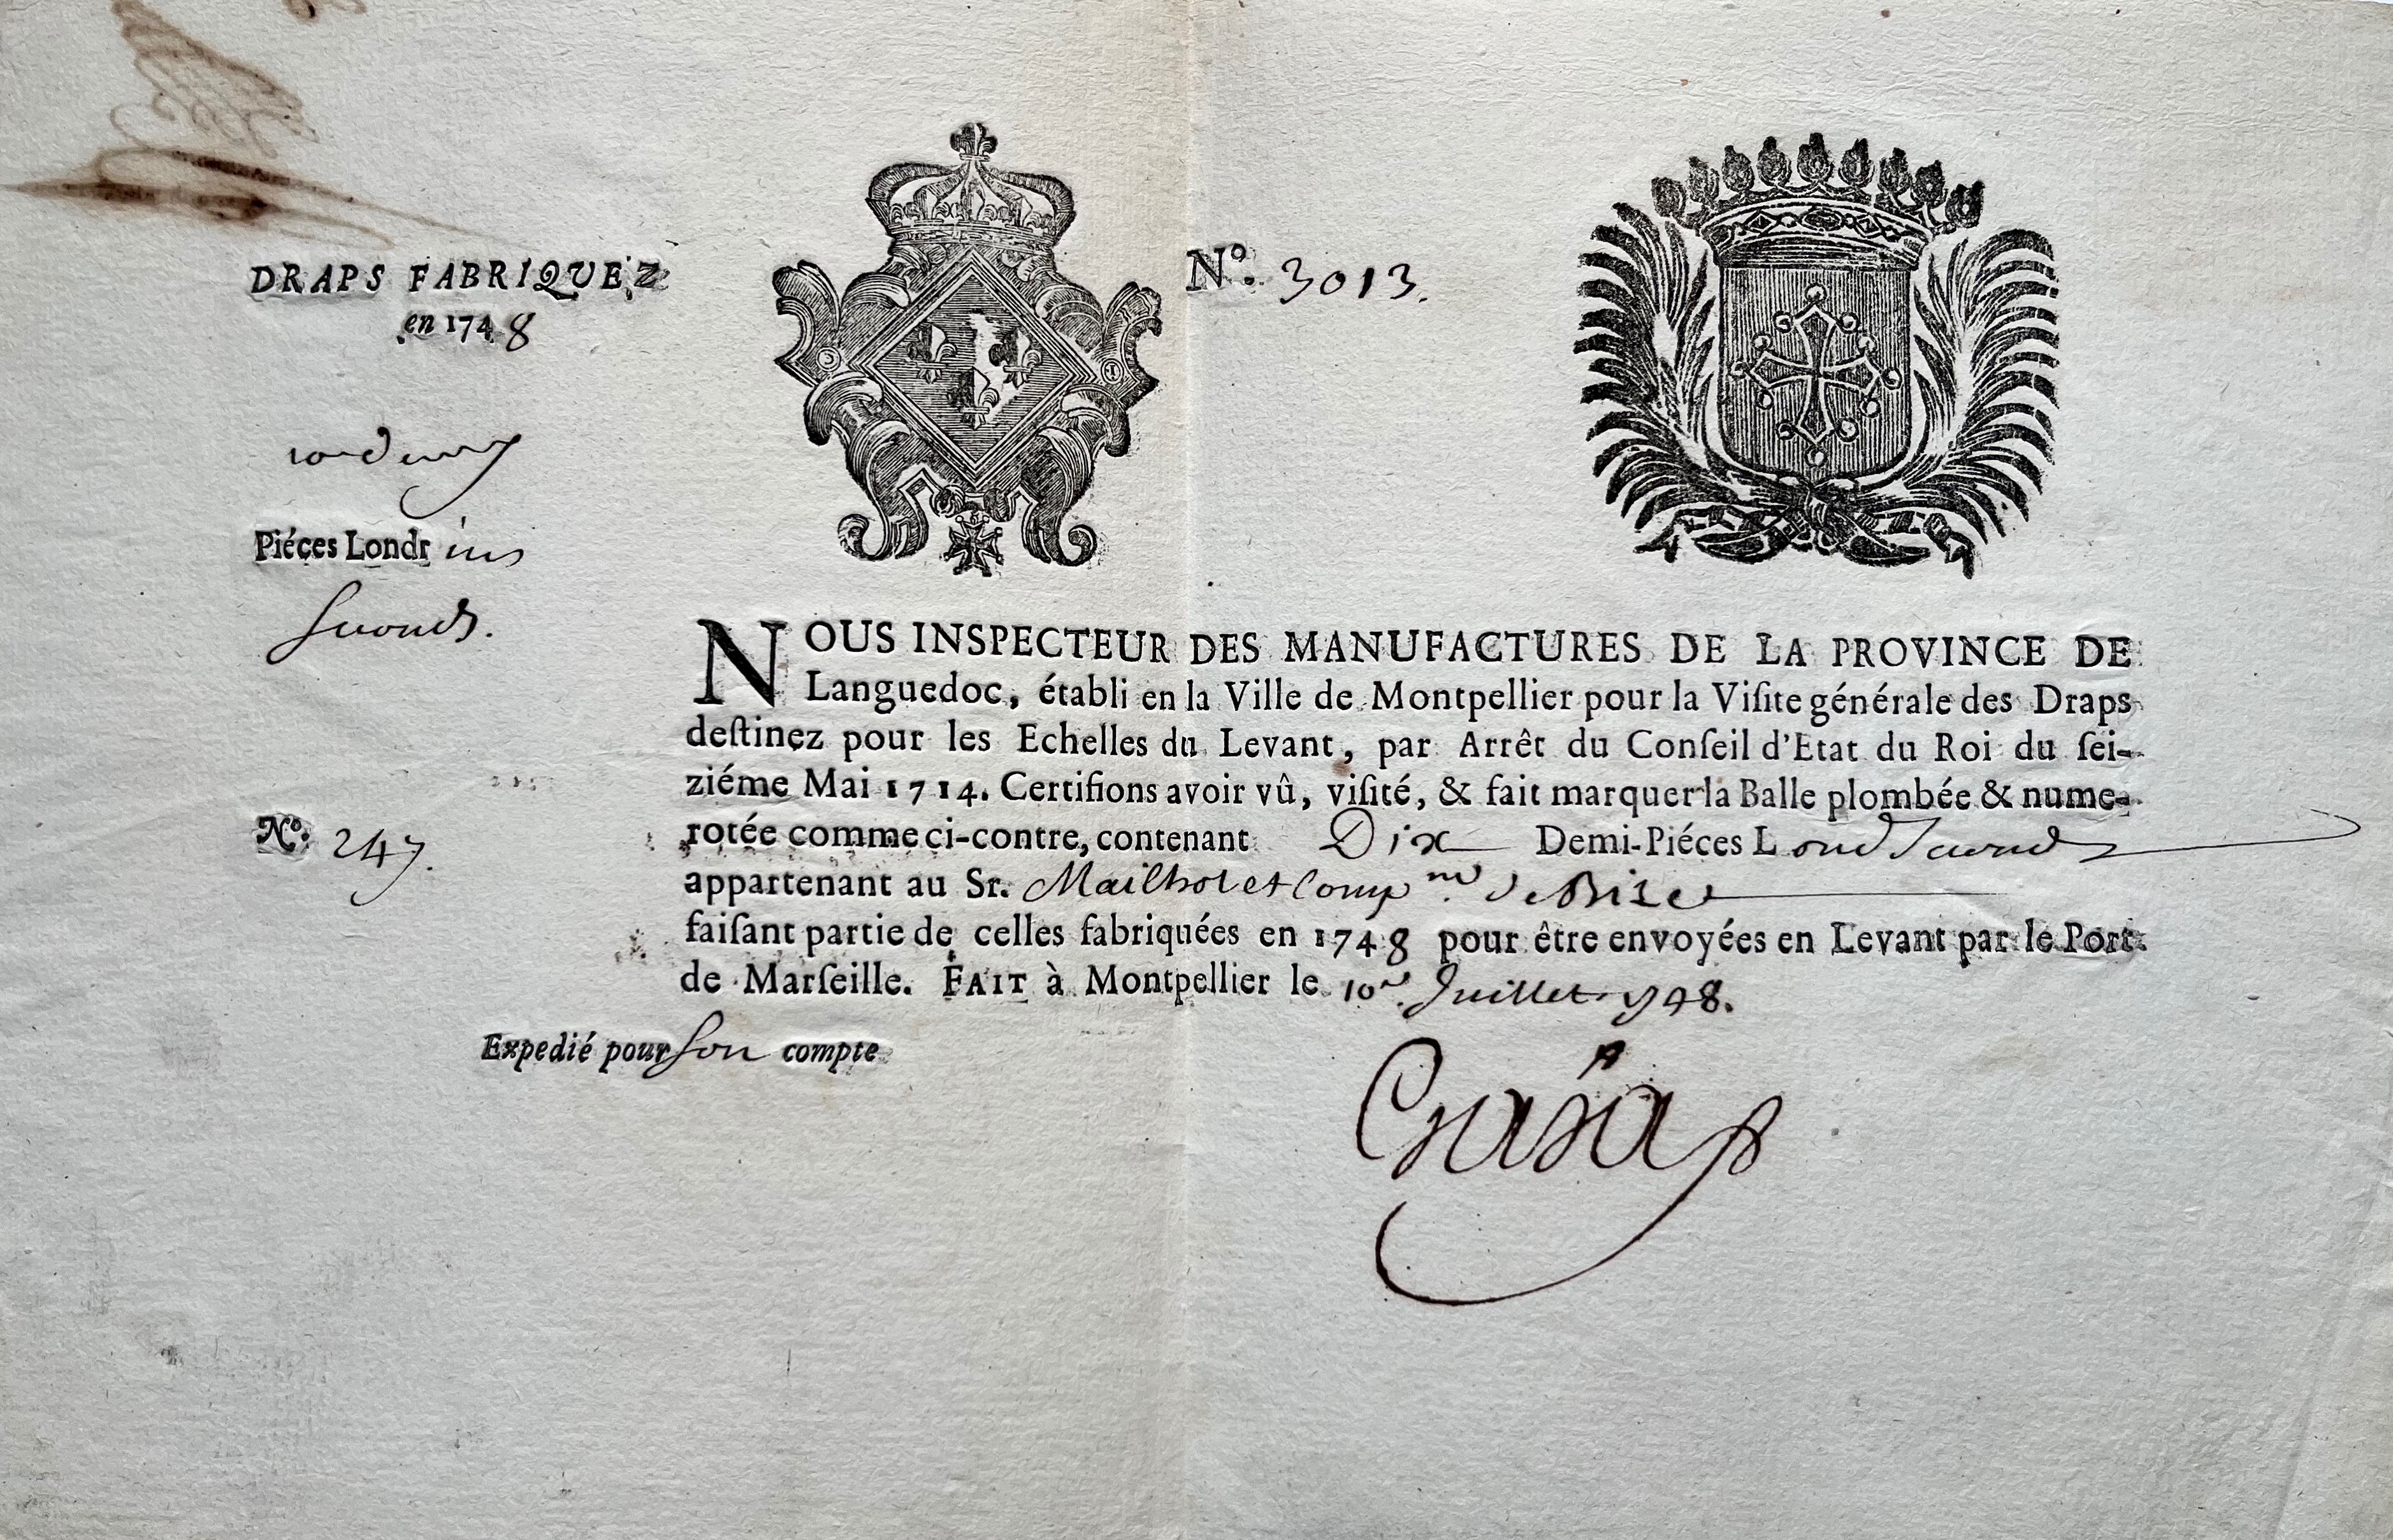 DRAPS FABRIQUEZ
en 1748
10 demy
Piéces Londrins
seconds.
Nº. 247.
Nº. 3013.
NOUS INSPECTEUR DES MANUFACTURES DE LA PROVINCE DE
Languedoc, établi en la Ville de Montpellier pour la Viſite générale des Draps
deſtinez pour les Echelles du Levant, par Arrêt du Conſeil d'Etat du Roi du ſei-
ziéme Mai 1714. Certifions avoir vû, viſité, & fait marquer la Balle plombée & nume-
rotée comme ci-contre, contenant Dix Demi-Piéces Lond seconds
appartenant au Sr. Mailhol et Comp.nie de Bize
faiſant partie de celles fabriquées en 1748 pour être envoyées en Levant par le Port
de Marſeille. FAIT à Montpellier le 10e. Juillet 1748.
Expedié pour son compte